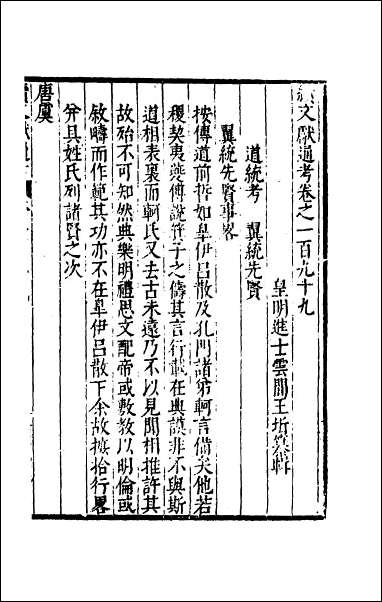 文獻通考卷之一百九十九
皇明進士雲間王圻纂輯
道統考 翼統先賢
翼統先賢事畧
按傳道前哲如皐伊呂散及孔門諸弟軻言備矣他若
稷契夷夔傅說箕子之儔其言行載在典謨非不與斯
道相表裏而軻氏又去古未遠乃不以見聞相推許其
故殆不可知然典樂明禮思文配帝或敷教以明倫或
敘疇而作範其功亦不在皐伊呂散下余故摭拾行畧
并且姓氏列諸賢之次
唐虞